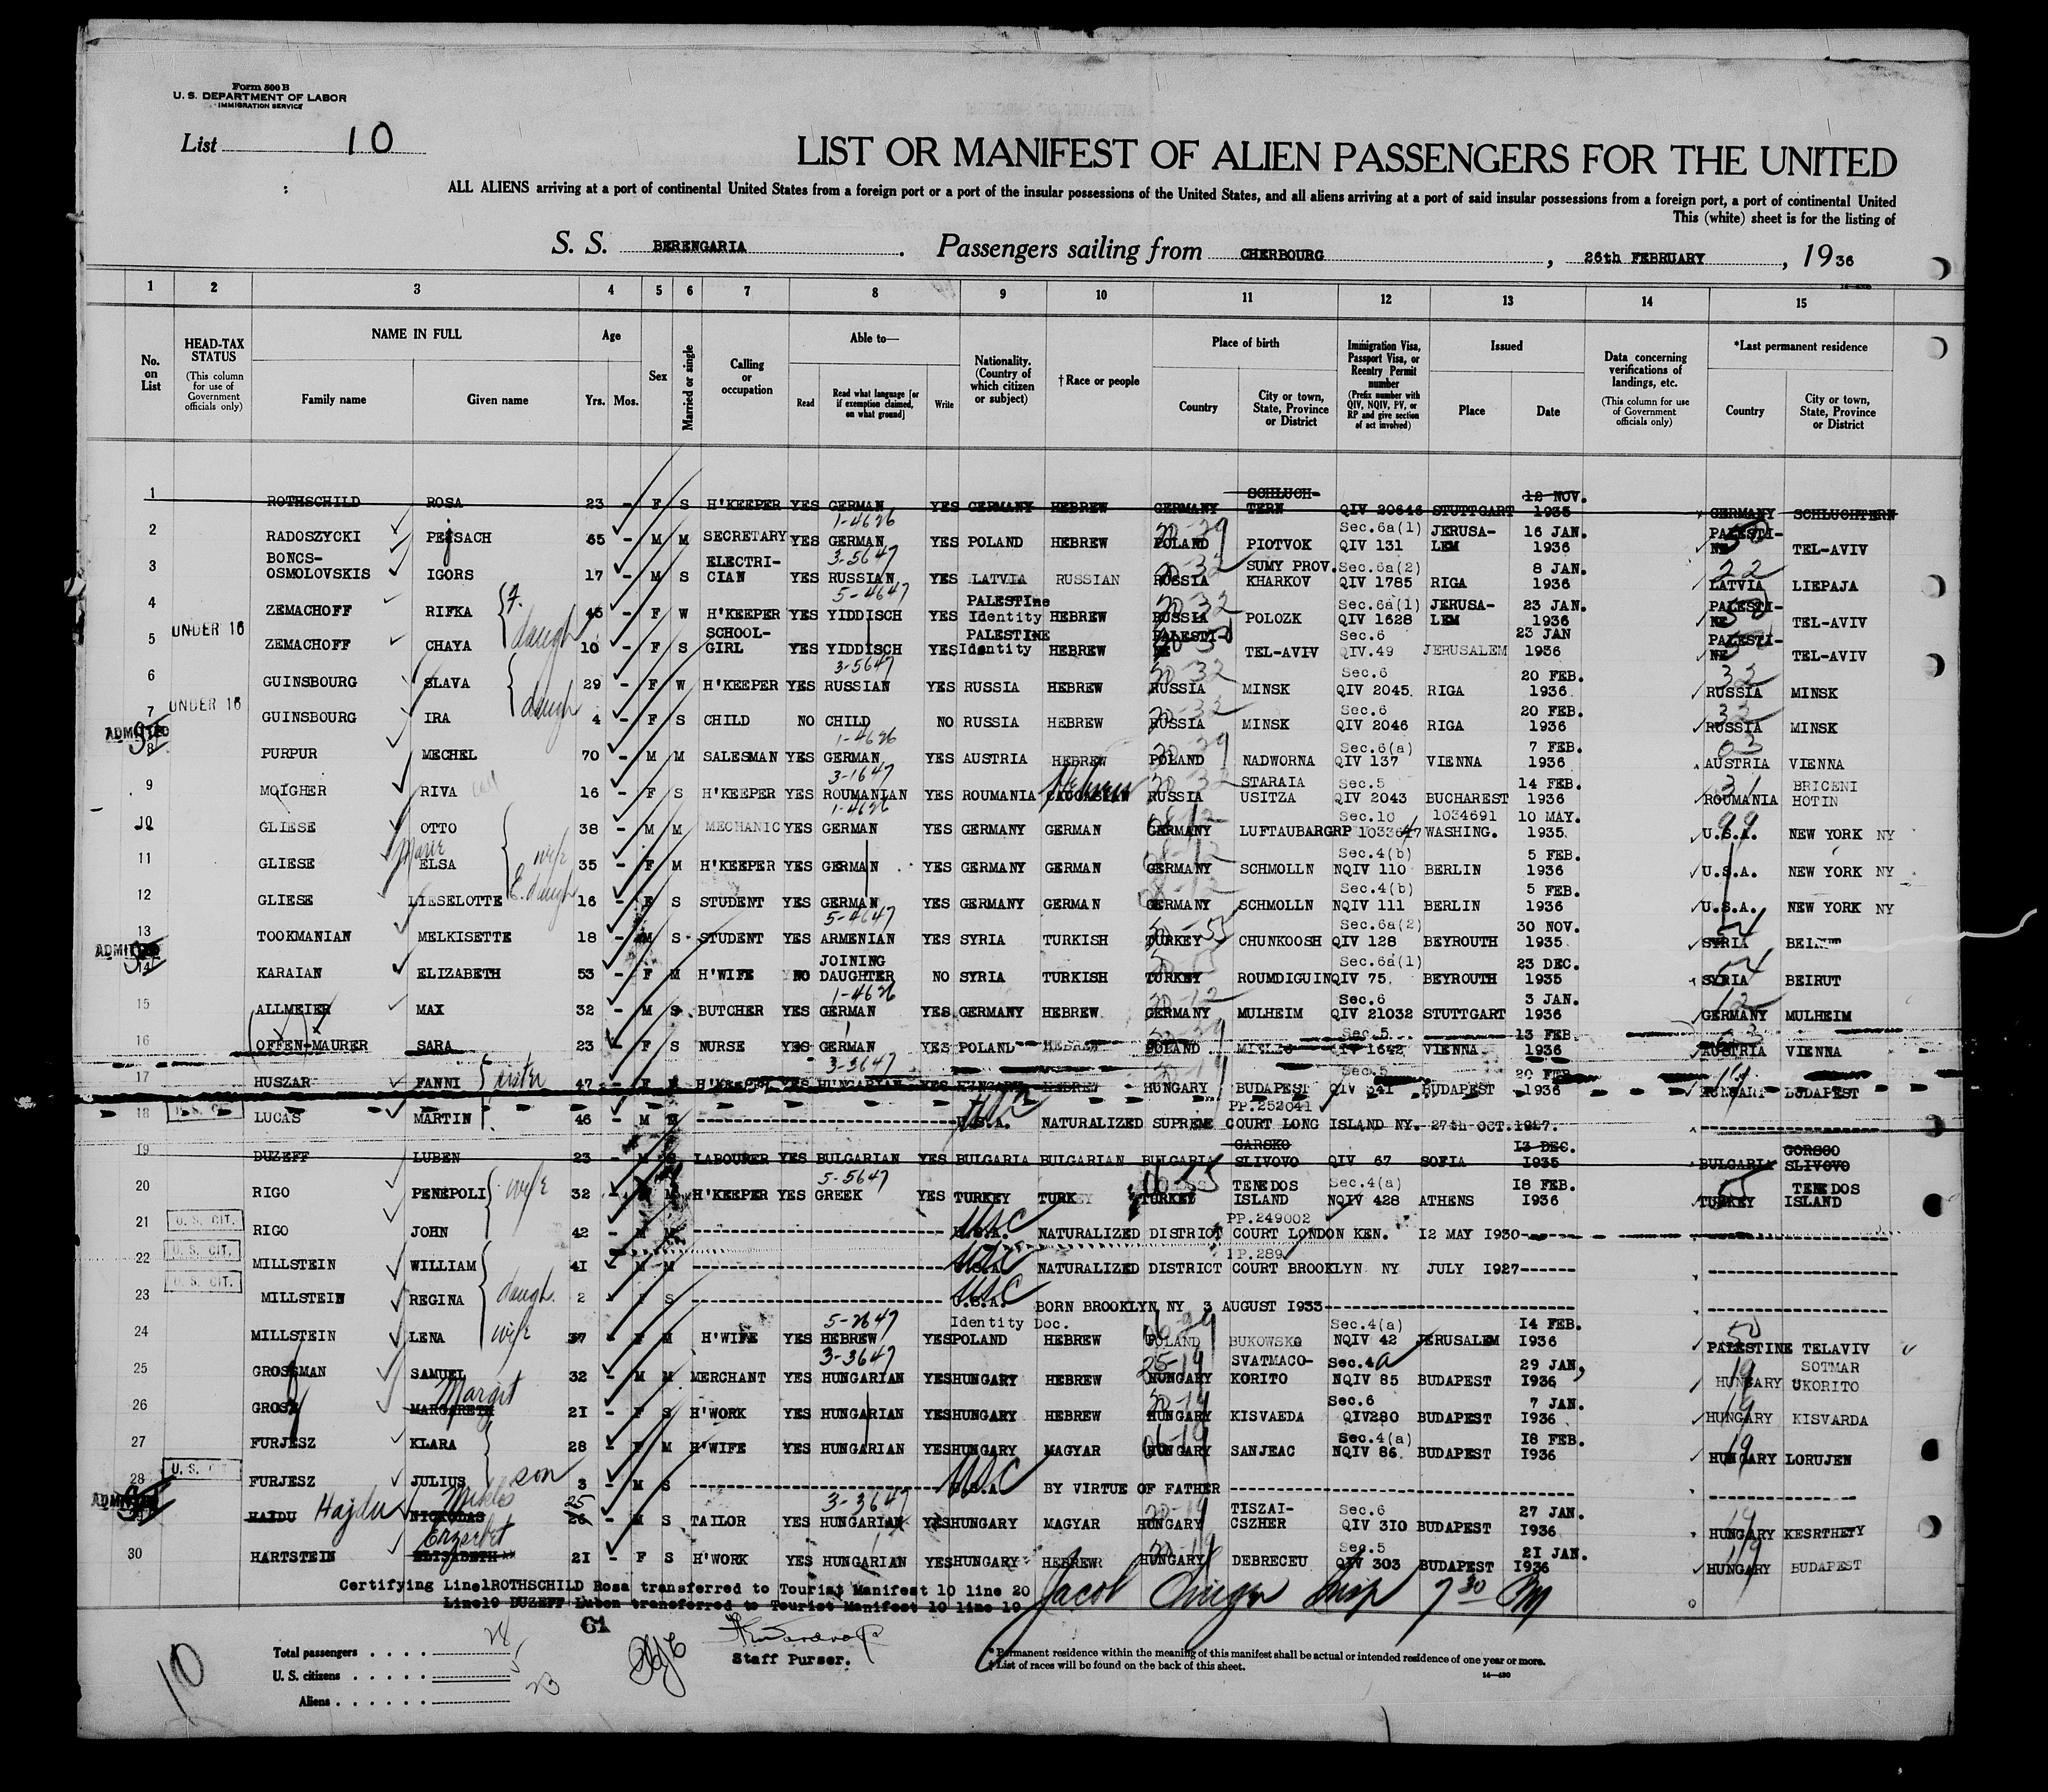 Form 500 B
U. S. DEPARTMENT OF LABOR
IMMIGRATION SERVICE
List 10
LIST OR MANIFEST OF ALIEN PASSENGERS FOR THE UNITED
ALL ALIENS arriving at a port of continental United States from a foreign port or a port of the insular possessions of the United States, and all aliens arriving at a port of said insular possessions from a foreign port, a port of continental United
This (white) sheet is for the listing of
S. S. BERENGARIA. Passengers sailing from CHERBOURG, 26th FEBRUARY, 1936
1 2 3 4 5 6 7 8 9 10 11 12 13 14 15
No. on List
HEAD-TAX STATUS (This column for use of Government officials only)
NAME IN FULL Family name Given name
Age Yrs. Mos.
Sex
Married or single
Calling or occupation
Able to— Read Read what language [or if exemption claimed, on what ground] Write
Nationality. (Country of which citizen or subject)
†Race or people
Place of birth Country City or town, State, Province or District
Immigration Visa, Passport Visa, or Reentry Permit number (Prefix number with QIV, NQIV, PV, or RP and give section of act involved)
Issued Place Date
Data concerning verifications of landings, etc. (This column for use of Government officials only)
*Last permanent residence Country City or town, State, Province or District
1 ROTHSCHILD ROSA 23 - F S H'KEEPER YES GERMAN YES GERMANY HEBREW GERMANY SCHLUCH-TERN QIV 20646 STUTTGART 12 NOV. 1935 GERMANY SCHLUCHTERN
2 RADOSZYCKI PEJSACH 65 - M M SECRETARY YES GERMAN 1-4626 YES POLAND HEBREW POLAND PIOTVOK Sec.6a(1) QIV 131 JERUSA-LEM 16 JAN. 1936 PALESTI-NE TEL-AVIV
3 BONCS-OSMOLOVSKIS IGORS 17 - M S ELECTRI-CIAN YES RUSSIAN 3-5647 YES LATVIA RUSSIAN RUSSIA SUMY PROV. KHARKOV Sec.6a(2) QIV 1785 RIGA 8 JAN. 1936 22 LATVIA LIEPAJA
4 ZEMACHOFF RIFKA 45 - F W H'KEEPER YES YIDDISCH 5-4647 YES PALESTINE Identity HEBREW RUSSIA POLOZK Sec.6a(1) QIV 1628 JERUSA-LEM 23 JAN. 1936 PALESTI-NE TEL-AVIV
5 UNDER 16 ZEMACHOFF CHAYA daugh 10 - F S SCHOOL-GIRL YES YIDDISCH YES PALESTINE Identity HEBREW PALESTI-NE TEL-AVIV Sec.6 QIV.49 JERUSALEM 23 JAN 1936 PALESTI-NE TEL-AVIV
6 GUINSBOURG SLAVA 29 - F W H'KEEPER YES RUSSIAN 3-5647 YES RUSSIA HEBREW RUSSIA MINSK Sec.6 QIV 2045. RIGA 20 FEB. 1936 RUSSIA MINSK
7 UNDER 16 GUINSBOURG IRA daugh 4 - F S CHILD NO CHILD NO RUSSIA HEBREW RUSSIA MINSK Sec.6 QIV 2046 RIGA 20 FEB. 1936 RUSSIA MINSK
ADMITTED
8 PURPUR MECHEL 70 - M M SALESMAN YES GERMAN 1-4626 YES AUSTRIA HEBREW POLAND NADWORNA Sec.6(a) QIV 137 VIENNA 7 FEB. 1936 AUSTRIA VIENNA
9 MOIGHER RIVA 16 - F S H'KEEPER YES ROUMANIAN 3-1647 YES ROUMANIA CAUCASIAN Hebrew RUSSIA STARAIA USITZA Sec.5 QIV 2043 BUCHAREST 14 FEB. 1936 ROUMANIA BRICENI HOTIN
10 GLIESE OTTO 38 - M M MECHANIC YES GERMAN 1-4626 YES GERMANY GERMAN GERMANY LUFTAUBARG Sec.10 RP 1033647 1034691 WASHING. 10 MAY. 1935 U.S.A. NEW YORK NY
11 GLIESE Marie ELSA wife 35 - F M H'KEEPER YES GERMAN YES GERMANY GERMAN GERMANY SCHMOLLN Sec.4(b) NQIV 110 BERLIN 5 FEB. 1936 U.S.A. NEW YORK NY
12 GLIESE LIESELOTTE E. daugh 16 - F S STUDENT YES GERMAN YES GERMANY GERMAN GERMANY SCHMOLLN Sec.4(b) NQIV 111 BERLIN 5 FEB. 1936 U.S.A. NEW YORK NY
13 TOOKMANIAN MELKISETTE 18 - M S STUDENT YES ARMENIAN 5-4647 YES SYRIA TURKISH TURKEY CHUNKOOSH Sec.6a(2) QIV 128 BEYROUTH 30 NOV. 1935 SYRIA
ADMITTED
14 KARAIAN ELIZABETH 53 - F M H'WIFE NO JOINING DAUGHTER NO SYRIA TURKISH TURKEY ROUMDIGUIN Sec.6a(1) QIV 75. BEYROUTH 23 DEC. 1935 54 SYRIA BEIRUT
15 ALLMEIER MAX 32 - M S BUTCHER YES GERMAN 1-4626 YES GERMANY HEBREW 20-12 GERMANY MULHEIM Sec.6 QIV 21032 STUTTGART 3 JAN. 1936 12 GERMANY MULHEIM
16 (OFFEN-MAURER SARA 23 - F S NURSE YES GERMAN YES POLAND HEBREW POLAND Sec.5 QIV 1642 VIENNA 13 FEB 1936 AUSTRIA VIENNA
17 HUSZAR FANNI sister 47 - F H'KEEPER YES HUNGARIAN 3-3647 YES HUNGARY HEBREW HUNGARY BUDAPEST Sec.5 QIV 341 BUDAPEST 20 FEB 1936 HUNGARY BUDAPEST
18 U. S. CIT. LUCAS MARTIN 46 - M M U.S.A. USC NATURALIZED SUPREME COURT LONG ISLAND NY. 27th OCT.1927. PP.252041
19 DUZEFF LUBEN 23 - M S LABOURER YES BULGARIAN YES BULGARIA BULGARIAN BULGARIA GARSKO SLIVOVO QIV 67 SOFIA 13 DEC. 1935 BULGARIA GORSGO SLIVOVO
20 RIGO PENEPOLI wife 32 - M H'KEEPER YES GREEK 5-5647 YES TURKEY TURK TURKEY TENEDOS ISLAND Sec.4(a) NQIV 428 ATHENS 18 FEB. 1936 55 TURKEY TENEDOS ISLAND
21 U. S. CIT. RIGO JOHN 42 - M M U.S.A. USC NATURALIZED DISTRICT COURT LONDON KEN. 12 MAY 1930 PP.249002
22 U. S. CIT. MILLSTEIN WILLIAM 41 - M M U.S.A. USC NATURALIZED DISTRICT COURT BROOKLYN NY JULY 1927
23 U. S. CIT. MILLSTEIN REGINA daugh. 2 F S U.S.A. USC BORN BROOKLYN NY 3 AUGUST 1933
24 MILLSTEIN LENA wife 37 - F M H'WIFE YES HEBREW 5-2647 YES Identity Doc. POLAND HEBREW POLAND BUKOWSKO Sec.4(a) NQIV 42 JERUSALEM 14 FEB. 1936 50 PALESTINE TELAVIV
25 GROSSMAN SAMUEL 32 - M M MERCHANT YES HUNGARIAN 3-3647 YES HUNGARY HEBREW 25-19 HUNGARY SVATMACO-KORITO Sec.4a NQIV 85 BUDAPEST 29 JAN, 1936 19 HUNGARY SOTMAR UKORITO
26 GROSZ MARGARETE Margit 21 - F S H'WORK YES HUNGARIAN YES HUNGARY HEBREW HUNGARY KISVAEDA Sec.6 QIV280 BUDAPEST 7 JAN. 1936 19 HUNGARY KISVARDA
27 FURJESZ KLARA 28 - F M H'WIFE YES HUNGARIAN YES HUNGARY MAGYAR 06-19 HUNGARY SANJEAC Sec.4(a) NQIV 86. BUDAPEST 18 FEB. 1936 19 HUNGARY LORUJEN
28 U. S. CIT. FURJESZ JULIUS son 3 - M S U.S.A. USC BY VIRTUE OF FATHER
ADMITTED
HAIDU Hajdu NICKODAS Miklos 25 26 - M S TAILOR YES HUNGARIAN 3-3647 YES HUNGARY MAGYAR 20-19 HUNGARY TISZAI-CSZHER Sec.6 QIV 310 BUDAPEST 27 JAN. 1936 19 HUNGARY KESRTHETY
30 HARTSTEIN ELISABETH Erzsebet 21 - F S H'WORK YES HUNGARIAN YES HUNGARY HEBREW 20-19 HUNGARY DEBRECEU Sec.5 QIV 303 BUDAPEST 21 JAN. 1936 19 HUNGARY BUDAPEST
Certifying Line1ROTHSCHILD Rosa transferred to Tourist Manifest 10 line 20
Line19 DUZEFF Luben transferred to Tourist Manifest 10 line 19
Jacob Insp 7 30 PM
61
Staff Purser.
Total passengers . . . . 28
U. S. citizens . . . . . 5
Aliens . . . . . . 23
10
* Permanent residence within the meaning of this manifest shall be actual or intended residence of one year or more.
† List of races will be found on the back of this sheet.
14—430